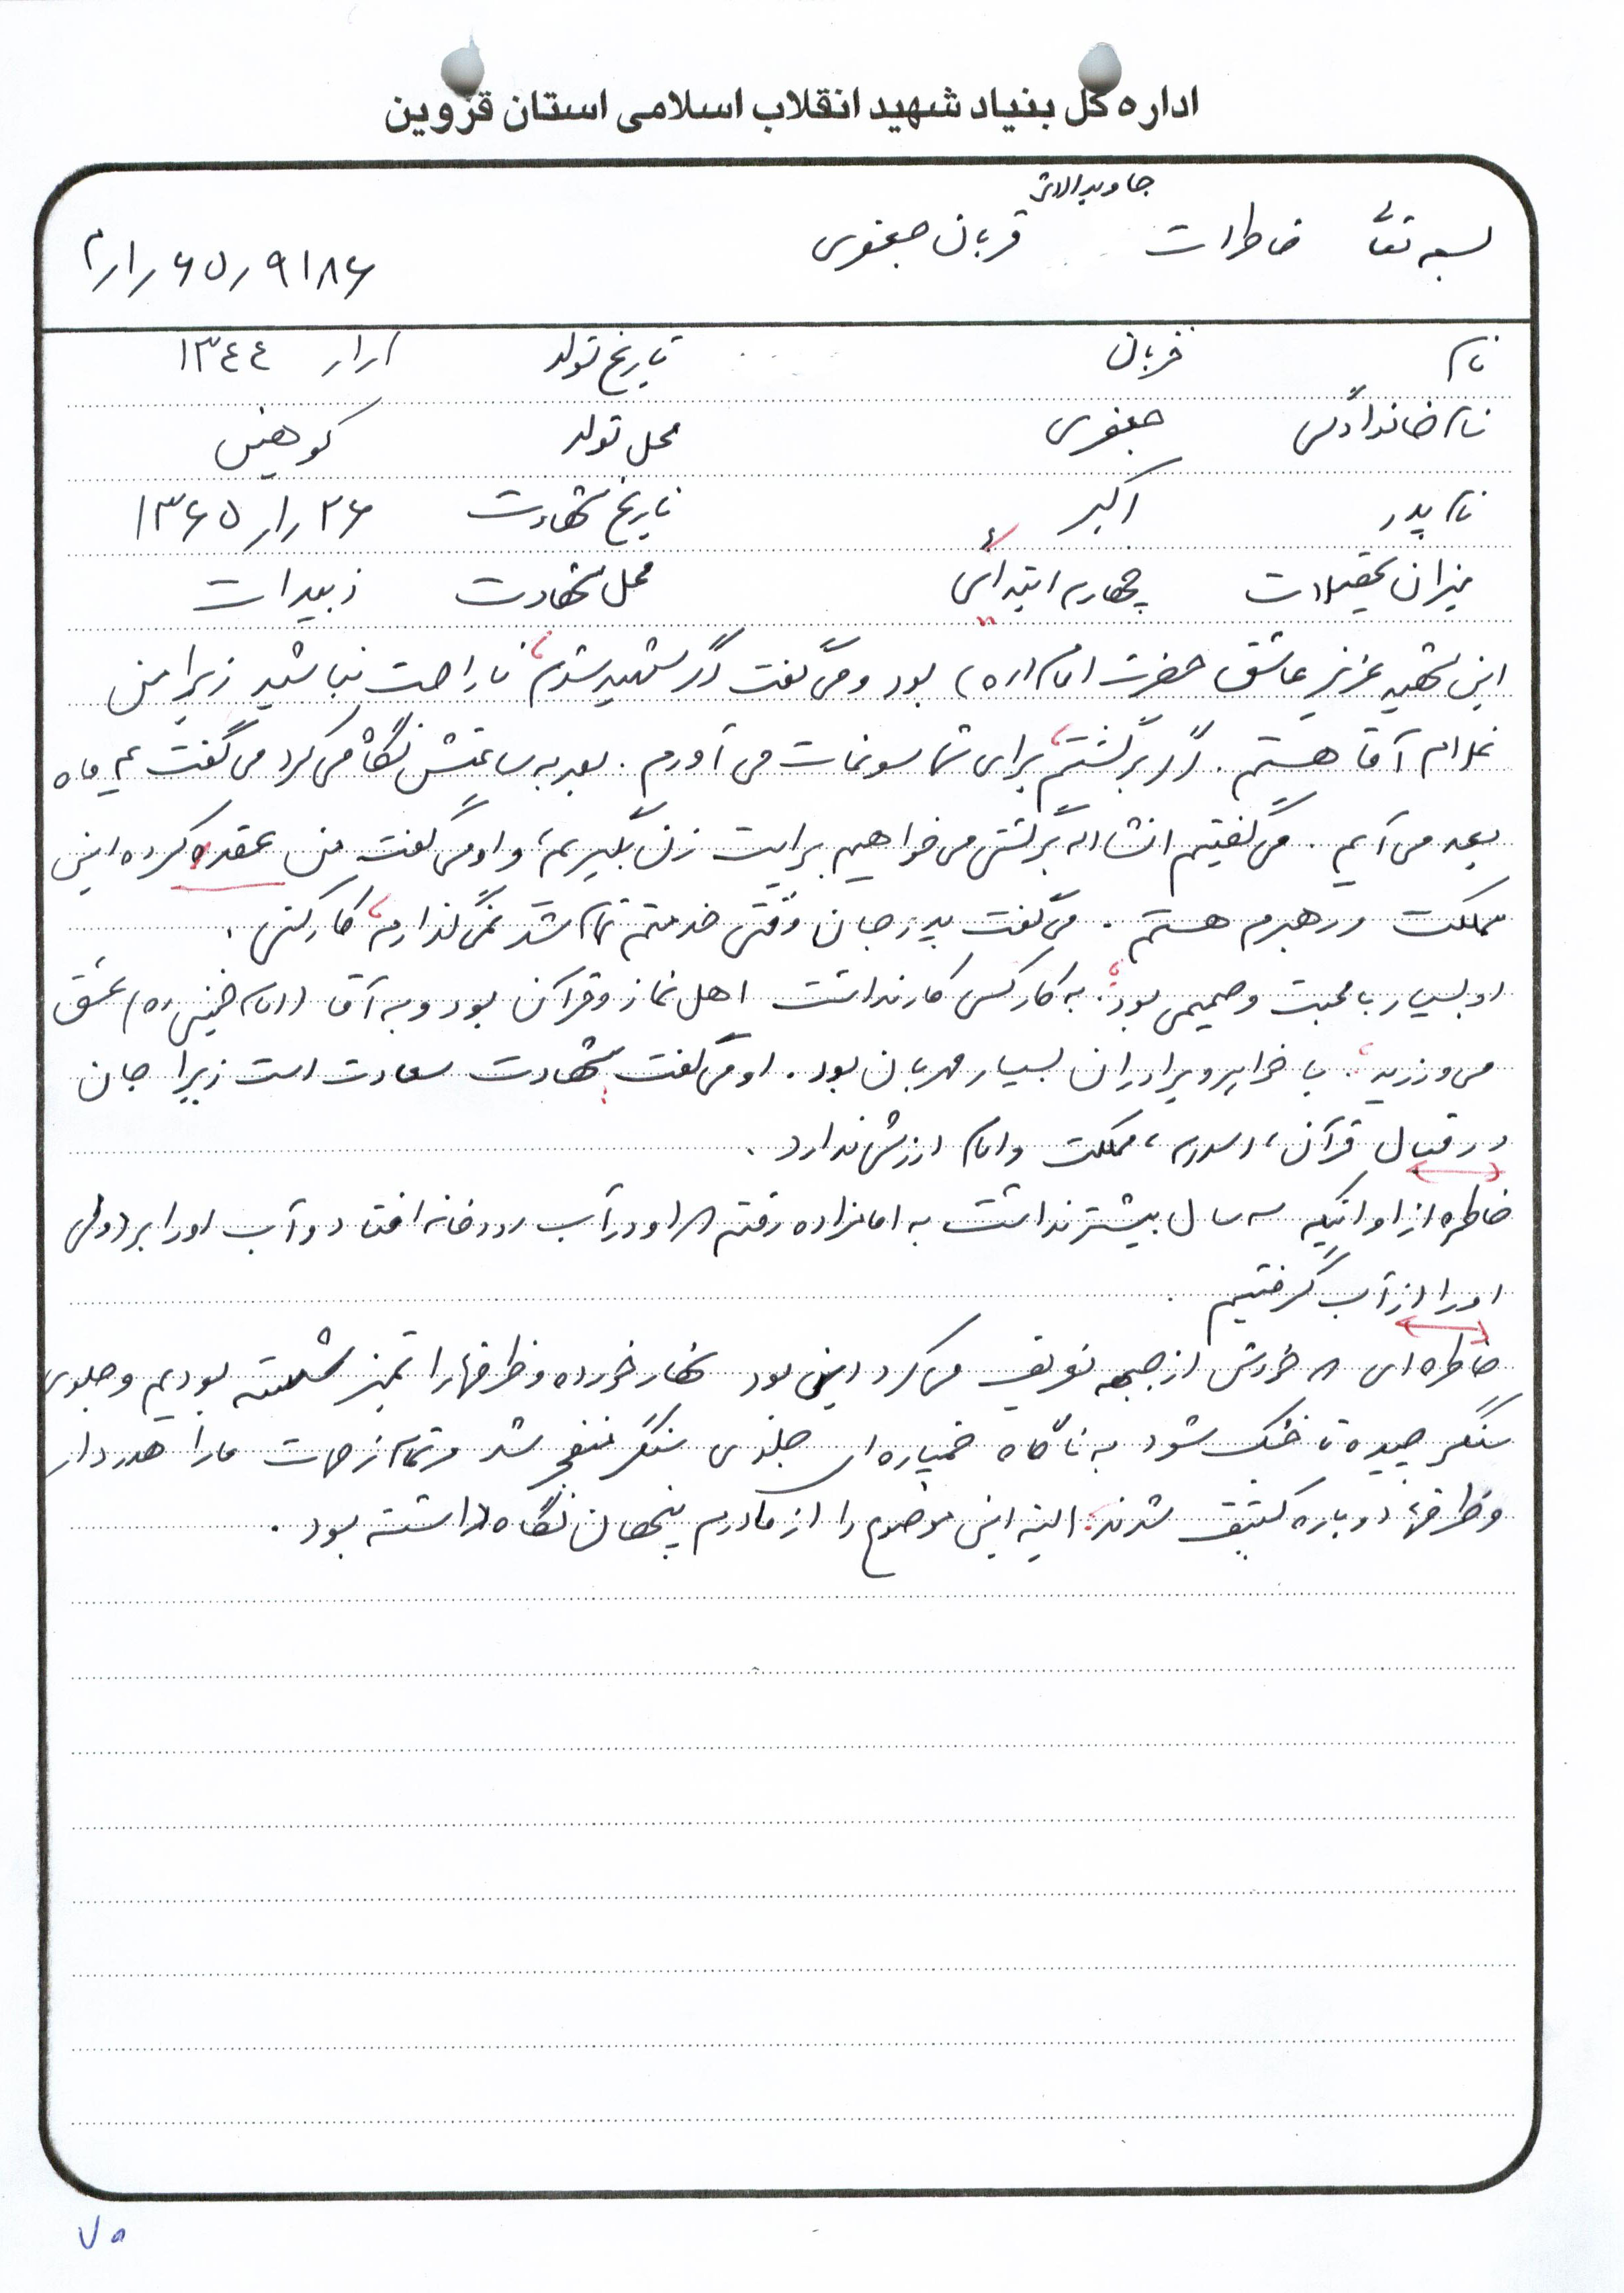 اداره کل بنیاد شهید انقلاب اسلامی استان قزوین
جاویدالاثر
بسمه تعالی خاطرات قربان جعفری ۶۵٫۹۱۸۶
نام قربان تاریخ تولد ۱٫۱٫ ۱۳۴۴
نام خانوادگی جعفری محل تولد کوهین
نام پدر اکبر تاریخ شهادت ۲۶٫۱٫۱۳۶۵
میزان تحصیلات چهارم ابتدائی محل شهادت زبیدات
این شهید عزیز عاشق حضرت امام (ره) بود و می گفت اگر شهید شدم، ناراحت نباشید زیرا من
غلام آقا هستم. اگر برگشتم، برای شما سوغات می آورم. بعد به ساعتش نگاه می کرد می گفت ماه
بعد می آیم. می گفتیم انشااله برگشتی می خواهیم برایت زن بگیریم، و او می گفت من عقد کرده این
مملکت و رهبرم هستم. می گفت پدر جان وقتی خدمتم تمام شد نمی گذارم، کار کنی.
او بسیار با محبت و صمیمی بود؛ به کار کسی کار نداشت اهل نماز و قرآن بود و به آقا (امام خمینی ره) عشق
می ورزید؛ با خواهر و برادران بسیار مهربان بود. او می گفت شهادت سعادت است زیرا جان
در قبال قرآن، اسلام، مملکت و امام ارزش ندارد.
خاطره از او اینکه سه سال بیشتر نداشت به امامزاده رفتیم که او در آب رودخانه افتاد و آب او را برد ولی
او را از آب گرفتیم.
خاطره ای که خودش از جبهه تعریف می کرد این بود نهار خورده و ظرفها را تمیز شسته بودیم و جلوی
سنگر چیده تا خشک شود به ناگاه خمپاره ای جلوی سنگر منفجر شد و تمام زحمات ما را هدر داد
و ظرفها دوباره کثیف شدند؛ البته این موضوع را از مادرم پنهان نگاه داشته بود.
۷۵